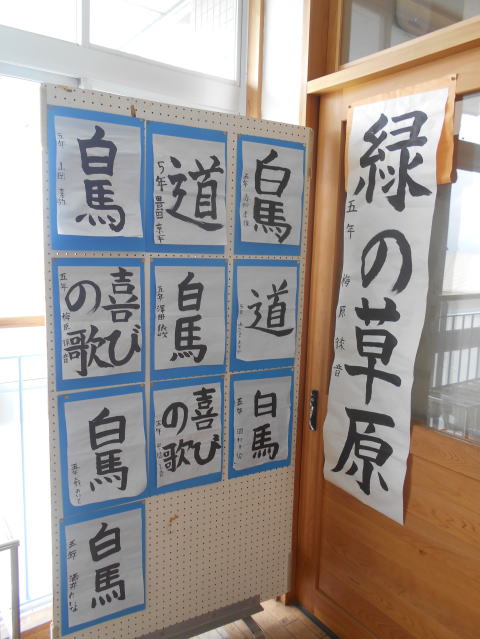 白馬
五年
道
5年 豊田
白馬
五年
喜び
の歌
五年 梅原 緑音
白馬
五年 澤田
道
五年
白馬
五年
喜び
の歌
五年
白馬
五年
白馬
五年 酒井
緑の草原
五年 梅原 緑音